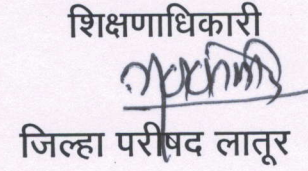 शिक्षणाधिकारी
जिल्हा परीषद लातूर